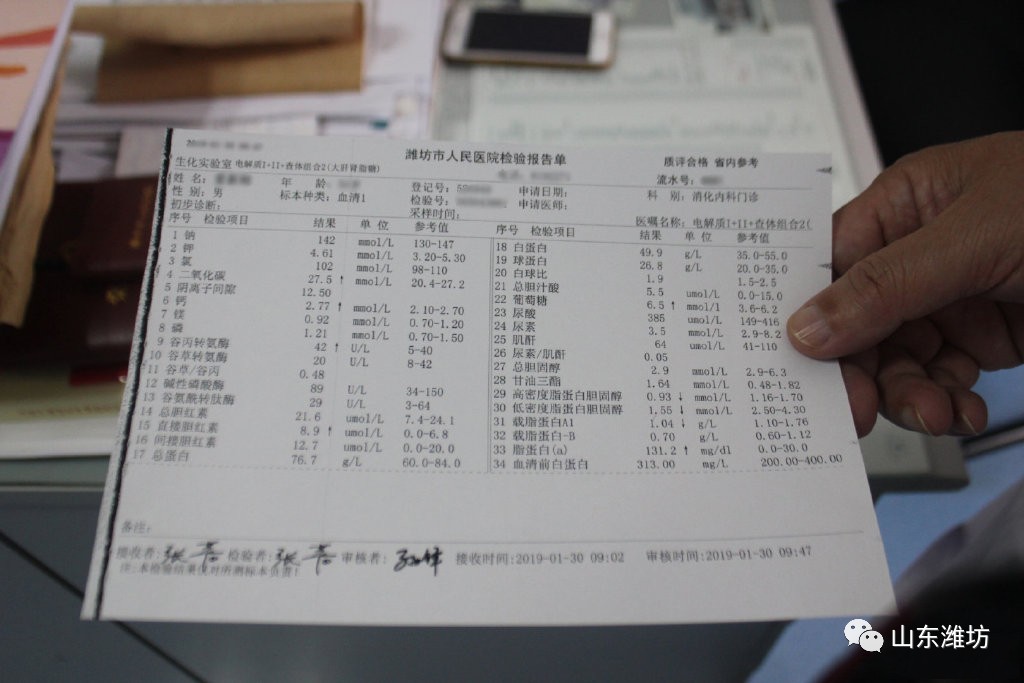 潍坊市人民医院检验报告单
质评合格 省内参考
生化实验室 电解质I+II+查体组合2(大肝肾脂糖)
流水号:
姓名:
年 龄:
登记号:
申请日期:
科 别: 消化内科门诊
性别: 男
标本种类: 血清1
检验号:
申请医师:
初步诊断:
采样时间:
医嘱名称: 电解质I+II+查体组合2(
序号 检验项目 结果 单 位 参考值
1 钠 142 mmol/L 130-147
2 钾 4.61 mmol/L 3.20-5.30
3 氯 102 mmol/L 98-110
4 二氧化碳 27.5 ↑ mmol/L 20.4-27.2
5 阴离子间隙 12.50
6 钙 2.77 ↑ mmol/L 2.10-2.70
7 镁 0.92 mmol/L 0.70-1.20
8 磷 1.21 mmol/L 0.70-1.50
9 谷丙转氨酶 42 ↑ U/L 5-40
10 谷草转氨酶 20 U/L 8-42
11 谷草/谷丙 0.48
12 碱性磷酸酶 89 U/L 34-150
13 谷氨酰转肽酶 29 U/L 3-64
14 总胆红素 21.6 umol/L 7.4-24.1
15 直接胆红素 8.9 ↑ umol/L 0.0-6.8
16 间接胆红素 12.7 umol/L 0.0-20.0
17 总蛋白 76.7 g/L 60.0-84.0
序号 检验项目 结果 单 位 参考值
18 白蛋白 49.9 g/L 35.0-55.0
19 球蛋白 26.8 g/L 20.0-35.0
20 白球比 1.9 1.5-2.5
21 总胆汁酸 5.5 umol/L 0.0-15.0
22 葡萄糖 6.5 ↑ mmol/l 3.6-6.2
23 尿酸 385 umol/L 149-416
24 尿素 3.5 mmol/L 2.9-8.2
25 肌酐 64 umol/L 41-110
26 尿素/肌酐 0.05
27 总胆固醇 2.9 mmol/L 2.9-6.3
28 甘油三酯 1.64 mmol/L 0.48-1.82
29 高密度脂蛋白胆固醇 0.93 ↓ mmol/L 1.16-1.70
30 低密度脂蛋白胆固醇 1.55 ↓ mmol/L 2.50-4.30
31 载脂蛋白A1 1.04 ↓ g/L 1.10-1.76
32 载脂蛋白-B 0.70 g/L 0.60-1.12
33 脂蛋白(a) 131.2 ↑ mg/dl 0.0-30.0
34 血清前白蛋白 313.00 mg/L 200.00-400.00
备注:
接收者: 检验者: 审核者: 接收时间:2019-01-30 09:02 审核时间:2019-01-30 09:47
注:本检验结果仅对所测标本负责!
山东潍坊